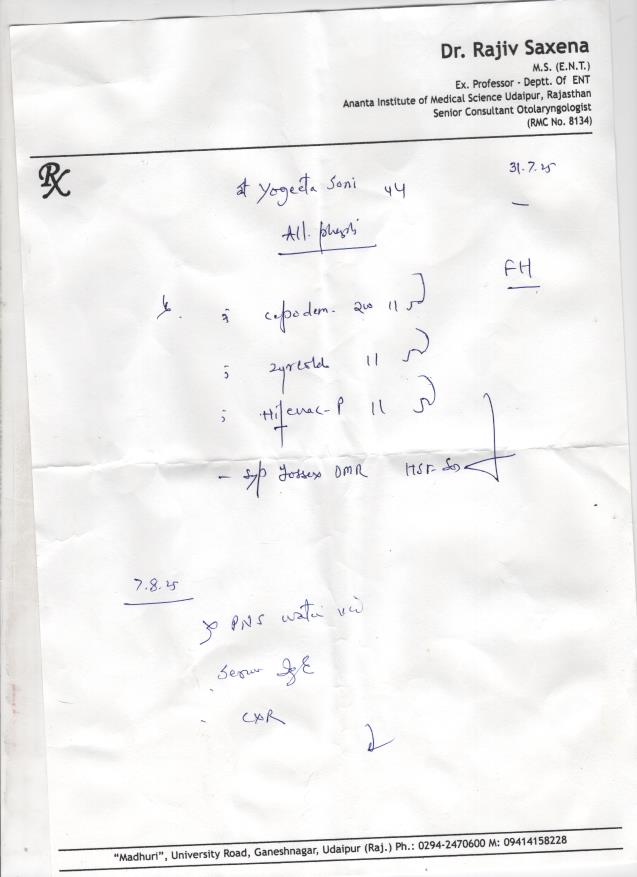 Dr. Rajiv Saxena
M.S. (E.N.T.)
Ex. Professor - Deptt. Of ENT
Ananta Institute of Medical Science Udaipur, Rajasthan
Senior Consultant Otolaryngologist
(RMC No. 8134)
Rx
31.7.25
Yogeeta Soni 44
All.
FH
cepodem. 200 11
11
Hifenac-P 11
- Syp Tossex DMR
7.8.25
PNS water
Serum IgE
CXR
"Madhuri", University Road, Ganeshnagar, Udaipur (Raj.) Ph.: 0294-2470600 M: 09414158228